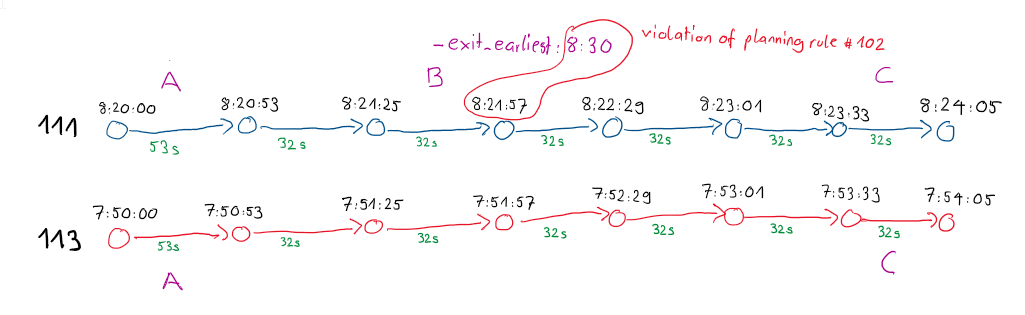 -exit_earliest: 8:30
violation of planning rule #102
A
B
C
8:20:00 8:20:53 8:21:25 8:21:57 8:22:29 8:23:01 8:23:33 8:24:05
111
53s 32s 32s 32s 32s 32s 32s
7:50:00 7:50:53 7:51:25 7:51:57 7:52:29 7:53:01 7:53:33 7:54:05
113
53s 32s 32s 32s 32s 32s 32s
A
C